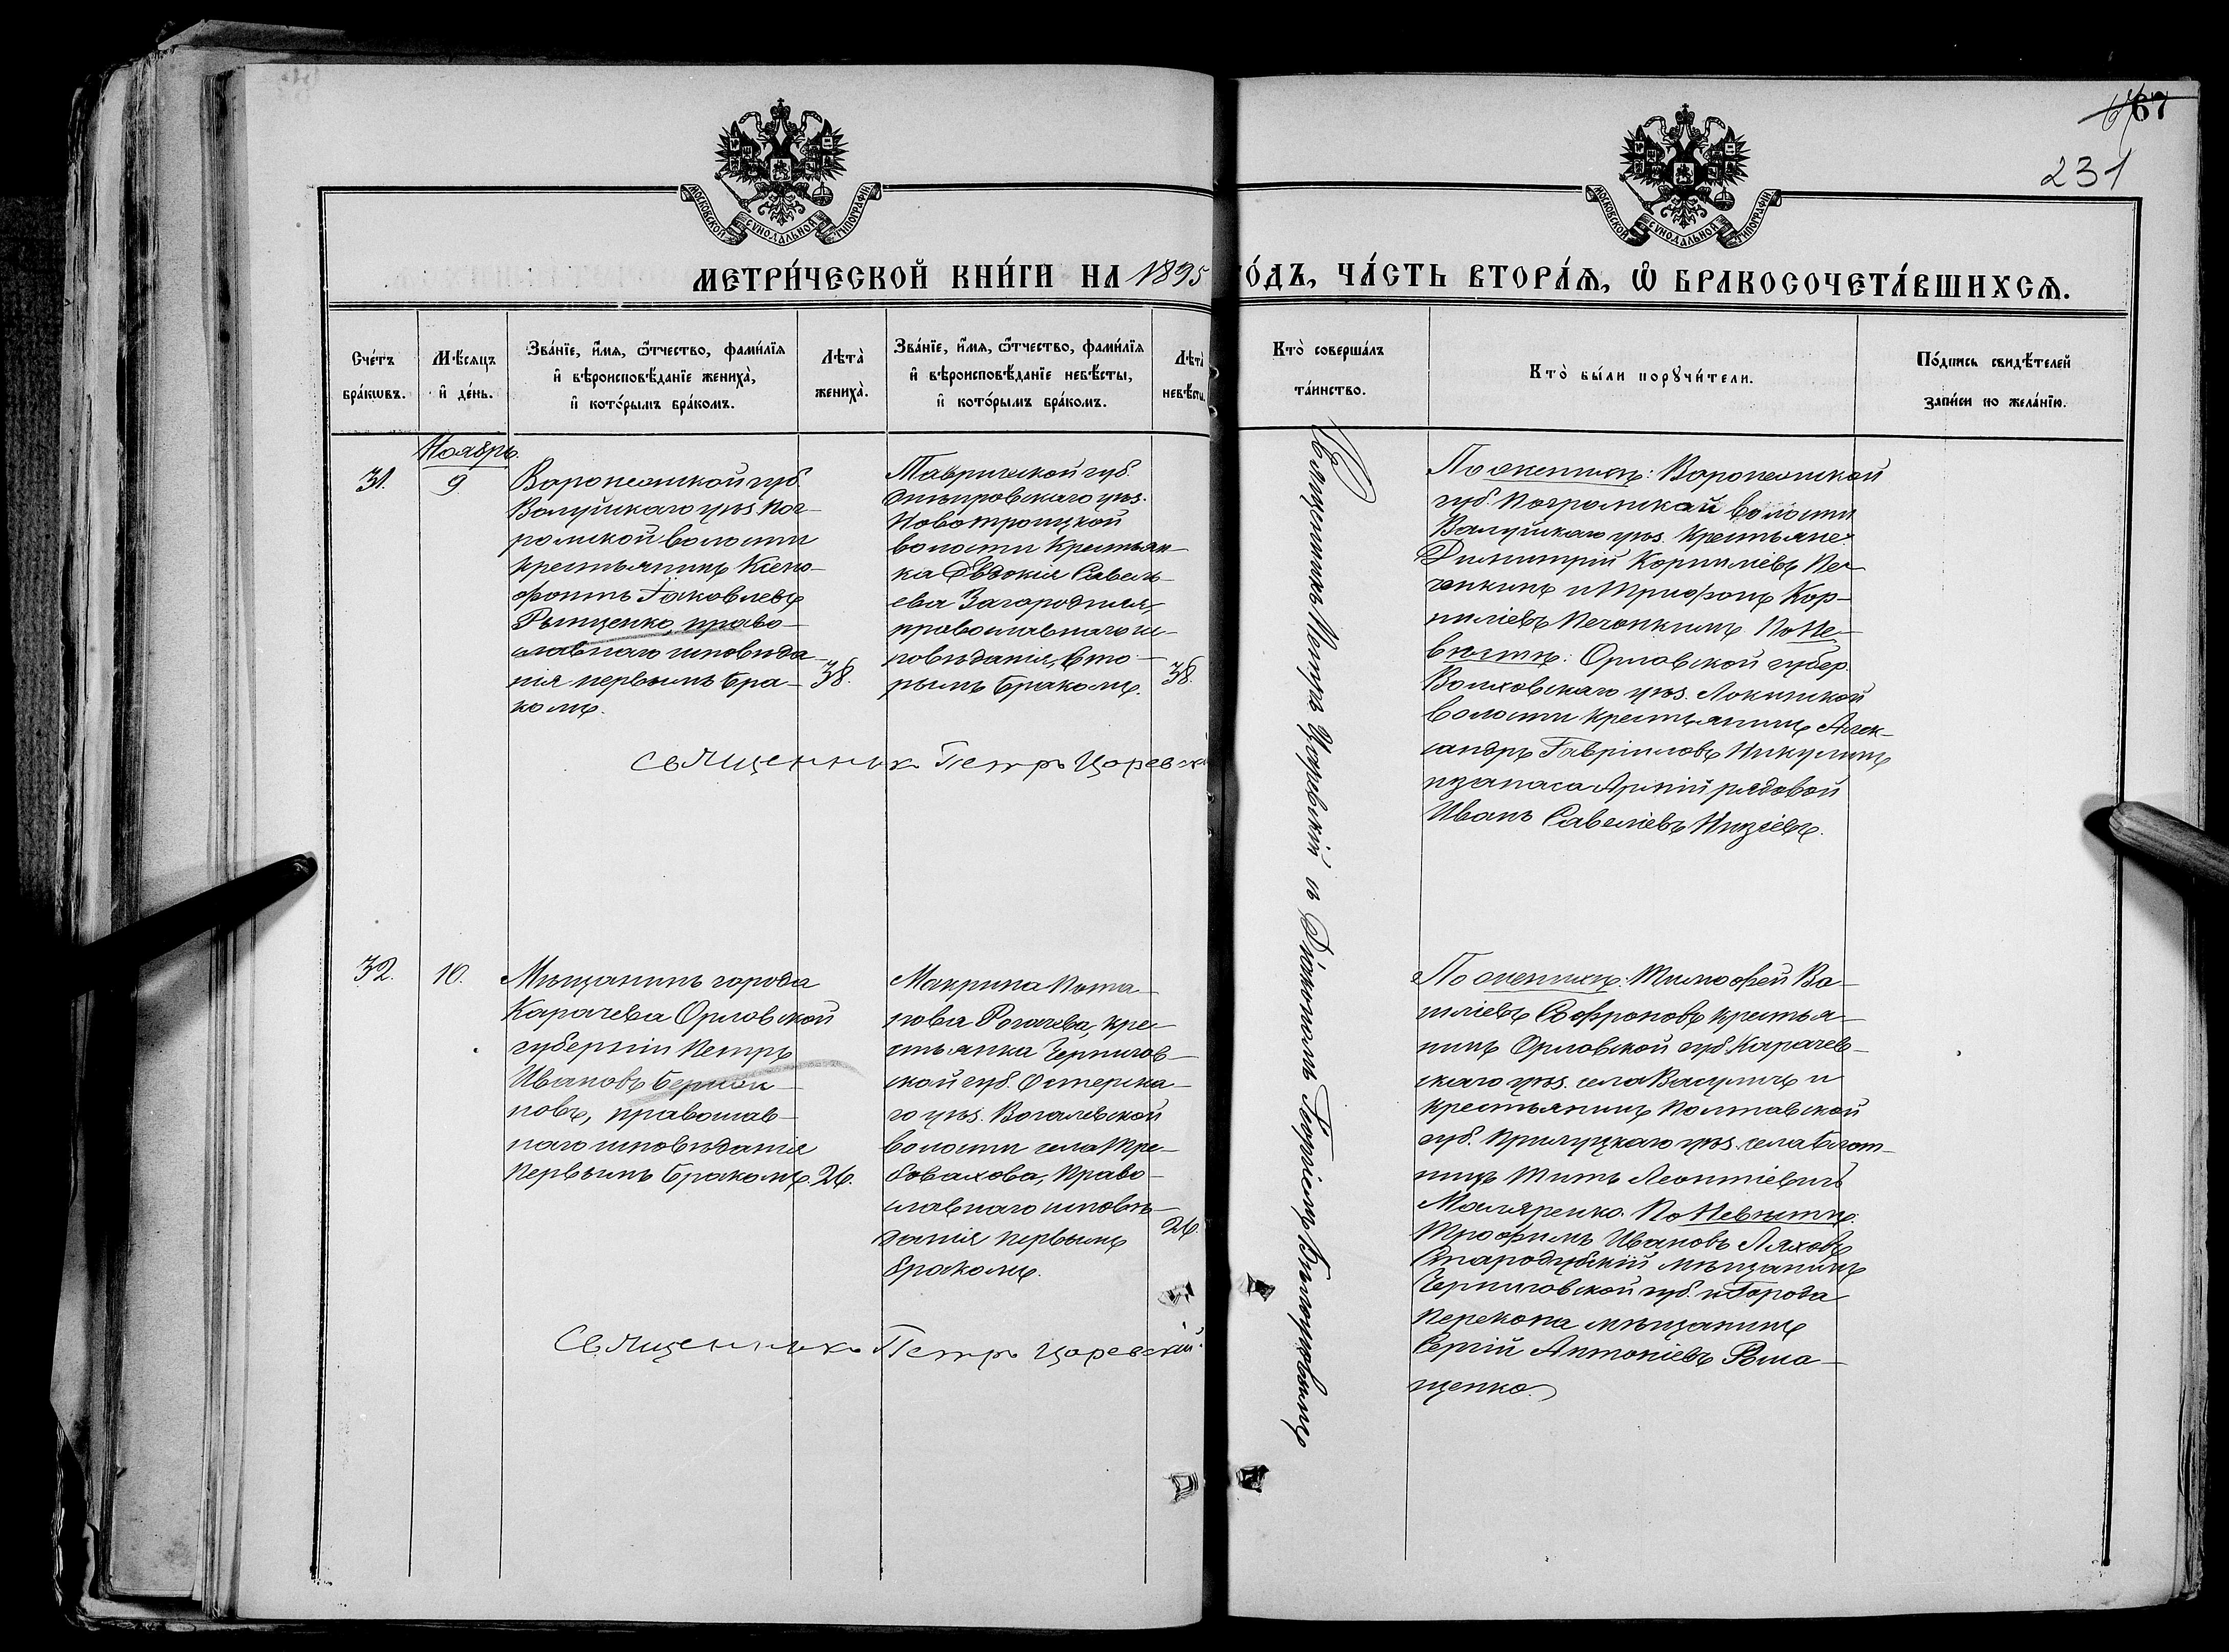 67
231
МОСКОВСКОЙ СѴНОДАЛЬНОЙ ТИПОГРАФІИ
МОСКОВСКОЙ СѴНОДАЛЬНОЙ ТИПОГРАФІИ
МЕТРИ́ЧЕСКОЙ КНИ́ГИ НА 1895
ГО́ДЪ, ЧА́СТЬ ВТОРА́Ѧ, Ѽ БРАКОСОЧЕТА́ВШИХСѦ.
Сче́тъ
бра́кѡвъ.
Мѣ́сѧцъ
и҆ де́нь.
Зва́нїе, и҆́мѧ, ѻ҆́тчество, фами́лїѧ
и҆ вѣроисповѣ́данїе жениха̀,
и҆ кото́рымъ бра́комъ.
Лѣта̀
жениха̀.
Зва́нїе, и҆́мѧ, ѻ҆́тчество, фами́лїѧ
и҆ вѣроисповѣ́данїе невѣ́сты,
и҆ кото́рымъ бра́комъ.
Лѣта̀
невѣ́сты.
Кто̀ соверша́лъ
та́инство.
Кто̀ бы́ли порꙋчи́тели.
По́дпись свидѣ́телей
за́писи по жела́нїю.
Ноябрь.
31.
9
Воронежской губ.
Валуйскаго уѣз. Пог-
ромской волости
крестьянинъ Ксено-
фонтъ Іаковлевъ
Рыщенко, право-
славнаго исповѣда
нія первымъ бра-
комъ.
38.
Таврической губ.
Днѣпровскаго уѣз.
Новотроицкой
волости крестьян-
ка Евдокія Савель-
ева Загородняя,
православнаго ис-
повѣданія, вто-
рымъ бракомъ.
38.
Священник Петръ Царевскі
Священникъ Петръ Царевскій и Діакономъ Георгіемъ
По женихѣ: Воронежской
губ. Погромской волости
Валуйскаго уѣз. Крестьяне:
Димитрій Корниліевъ Пе-
чонкинъ и Трифонъ Кор-
ниліевъ Печонкинъ. По Не-
вѣстѣ: Орловской губер.
Волховскаго уѣз. Локинской
волости крестьянинъ Алек-
сандръ Гавріиловъ Никулинъ
и запаса Армій рядовой
Иванъ Савеліевъ
32.
10.
Мѣщанинъ города
Карачева Орловской
губерніи Петръ
Ивановъ
новъ, православ-
наго исповѣданія
первымъ бракомъ
26.
Макрина Пота-
пова Рогачева, кре-
стьянка Чернигов-
ской губ. Остерска-
го уѣз.
волости села Тре-
бовахова, Право-
славнаго исповѣ-
данія первымъ
бракомъ.
26.
Священникъ Петръ Царевскій.
По женихѣ: Тимофей Ва-
силіевъ Софроновъ крестья-
нинъ Орловской губ. Карачев-
скаго уѣз. села и
крестьянинъ Полтавской
губ. Прилуцкаго уѣз. села
Титъ Леонтіевичъ
Моляренко. По Невѣстѣ:
Трофимъ Ивановъ Ляховъ
Стародубскій мѣщанинъ
Черниговской губ. и Города
Перекопа мѣщанинъ
Сергій Антоніевъ Рома-
щенко.